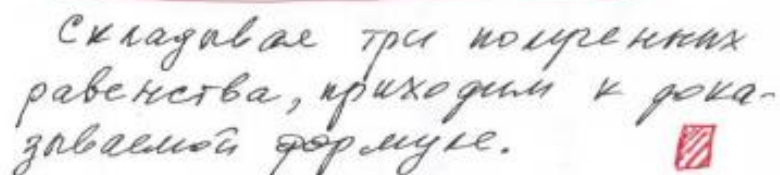 Складывая три полученных
равенства, приходим к дока-
зываемой формуле.